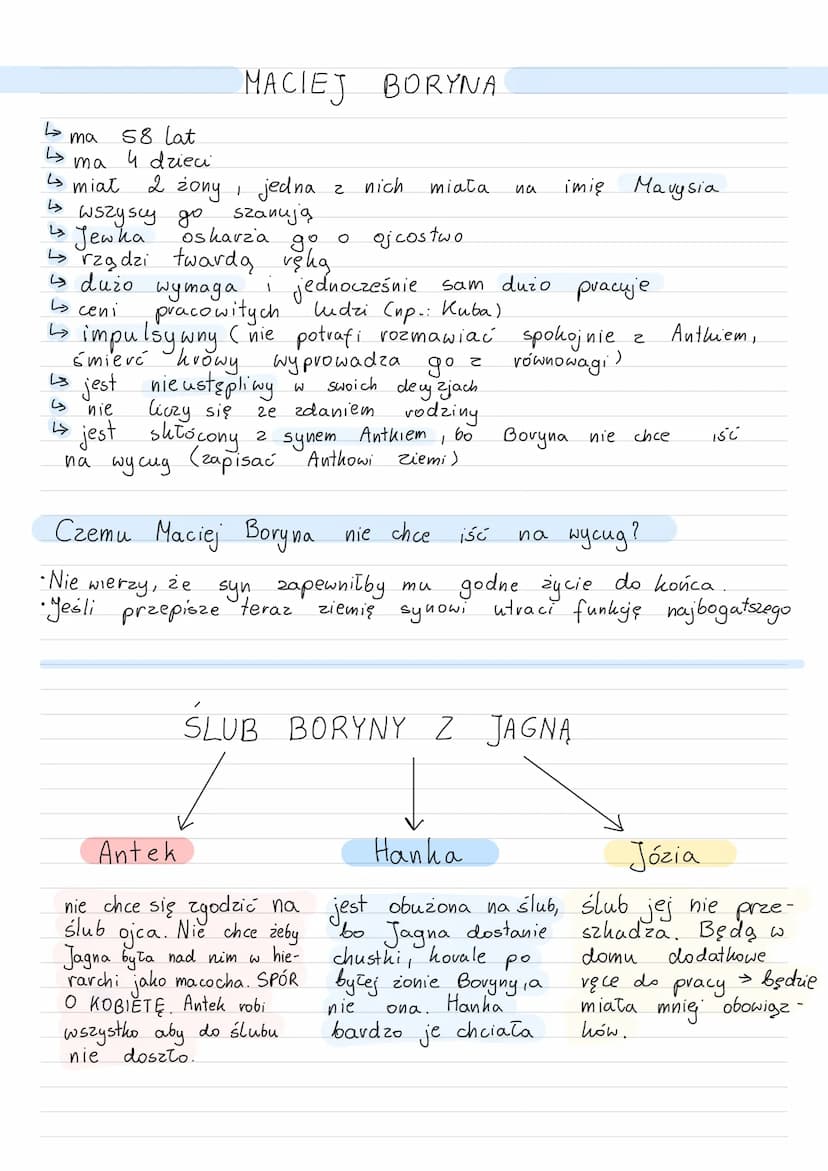 MACIEJ BORYNA
↳ ma 58 lat
↳ ma 4 dzieci
↳ miał 2 żony, jedna z nich miała na imię Marysia
↳ wszyscy go szanują
↳ Jewka oskarża go o ojcostwo
↳ rządzi twardą ręką
↳ dużo wymaga i jednocześnie sam dużo pracuje
↳ ceni pracowitych ludzi (np.: Kuba)
↳ impulsywny (nie potrafi rozmawiać spokojnie z Antkiem,
śmierć krowy wyprowadza go z równowagi)
↳ jest nieustępliwy w swoich decyzjach
↳ nie liczy się ze zdaniem rodziny
↳ jest skłócony z synem Antkiem, bo Boryna nie chce iść
na wycug (zapisać Antkowi ziemi)
Czemu Maciej Boryna nie chce iść na wycug?
·Nie wierzy, że syn zapewniłby mu godne życie do końca.
·Jeśli przepisze teraz ziemię synowi utraci funkcję najbogatszego
ŚLUB BORYNY Z JAGNĄ
Antek
nie chce się zgodzić na
ślub ojca. Nie chce żeby
Jagna była nad nim w hie-
rarchi jako macocha. SPÓR
O KOBIETĘ. Antek robi
wszystko aby do ślubu
nie doszło.
Hanka
jest obużona na ślub,
bo Jagna dostanie
chustki, korale po
byłej żonie Boryny, a
nie ona. Hanka
bardzo je chciała
Józia
ślub jej nie prze-
szkadza. Będą w
domu dodatkowe
ręce do pracy → będzie
miała mniej obowiąz-
ków.